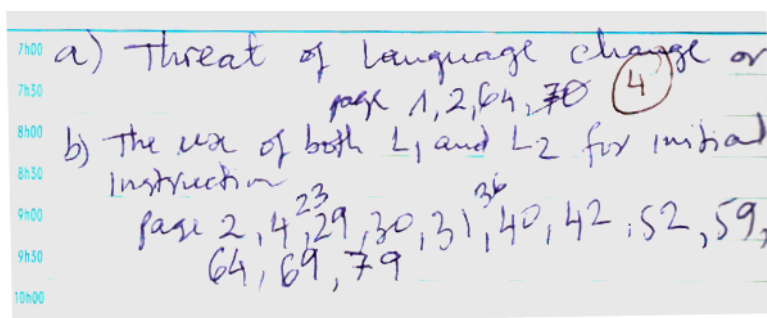 7h00 a) Threat of Language change or
7h30 page 1, 2, 64, 70 4
8h00 b) The use of both L1 and L2 for initial
8h30 Instruction
9h00 page 2, 4, 23, 29, 30, 31, 36, 40, 42, 52, 59,
9h30 64, 69, 79
10h00